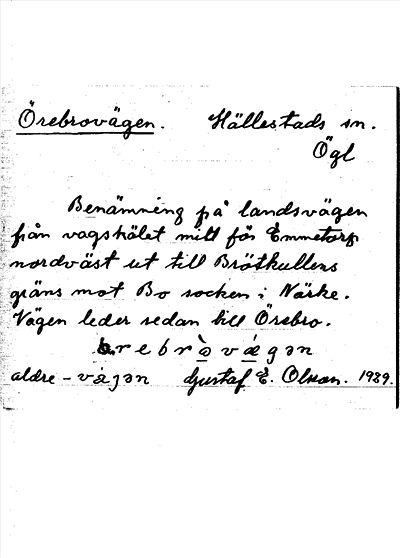 Örebrovägen. Hällestads sn.
Ögl
Benämning på landsvägen
från vagshålet mitt för Emmetorp
nordväst ut till Brötkullens
gräns mot Bo socken i Närke.
Vägen leder sedan till Örebro.
aldre - Gustaf E. Olson. 1939.